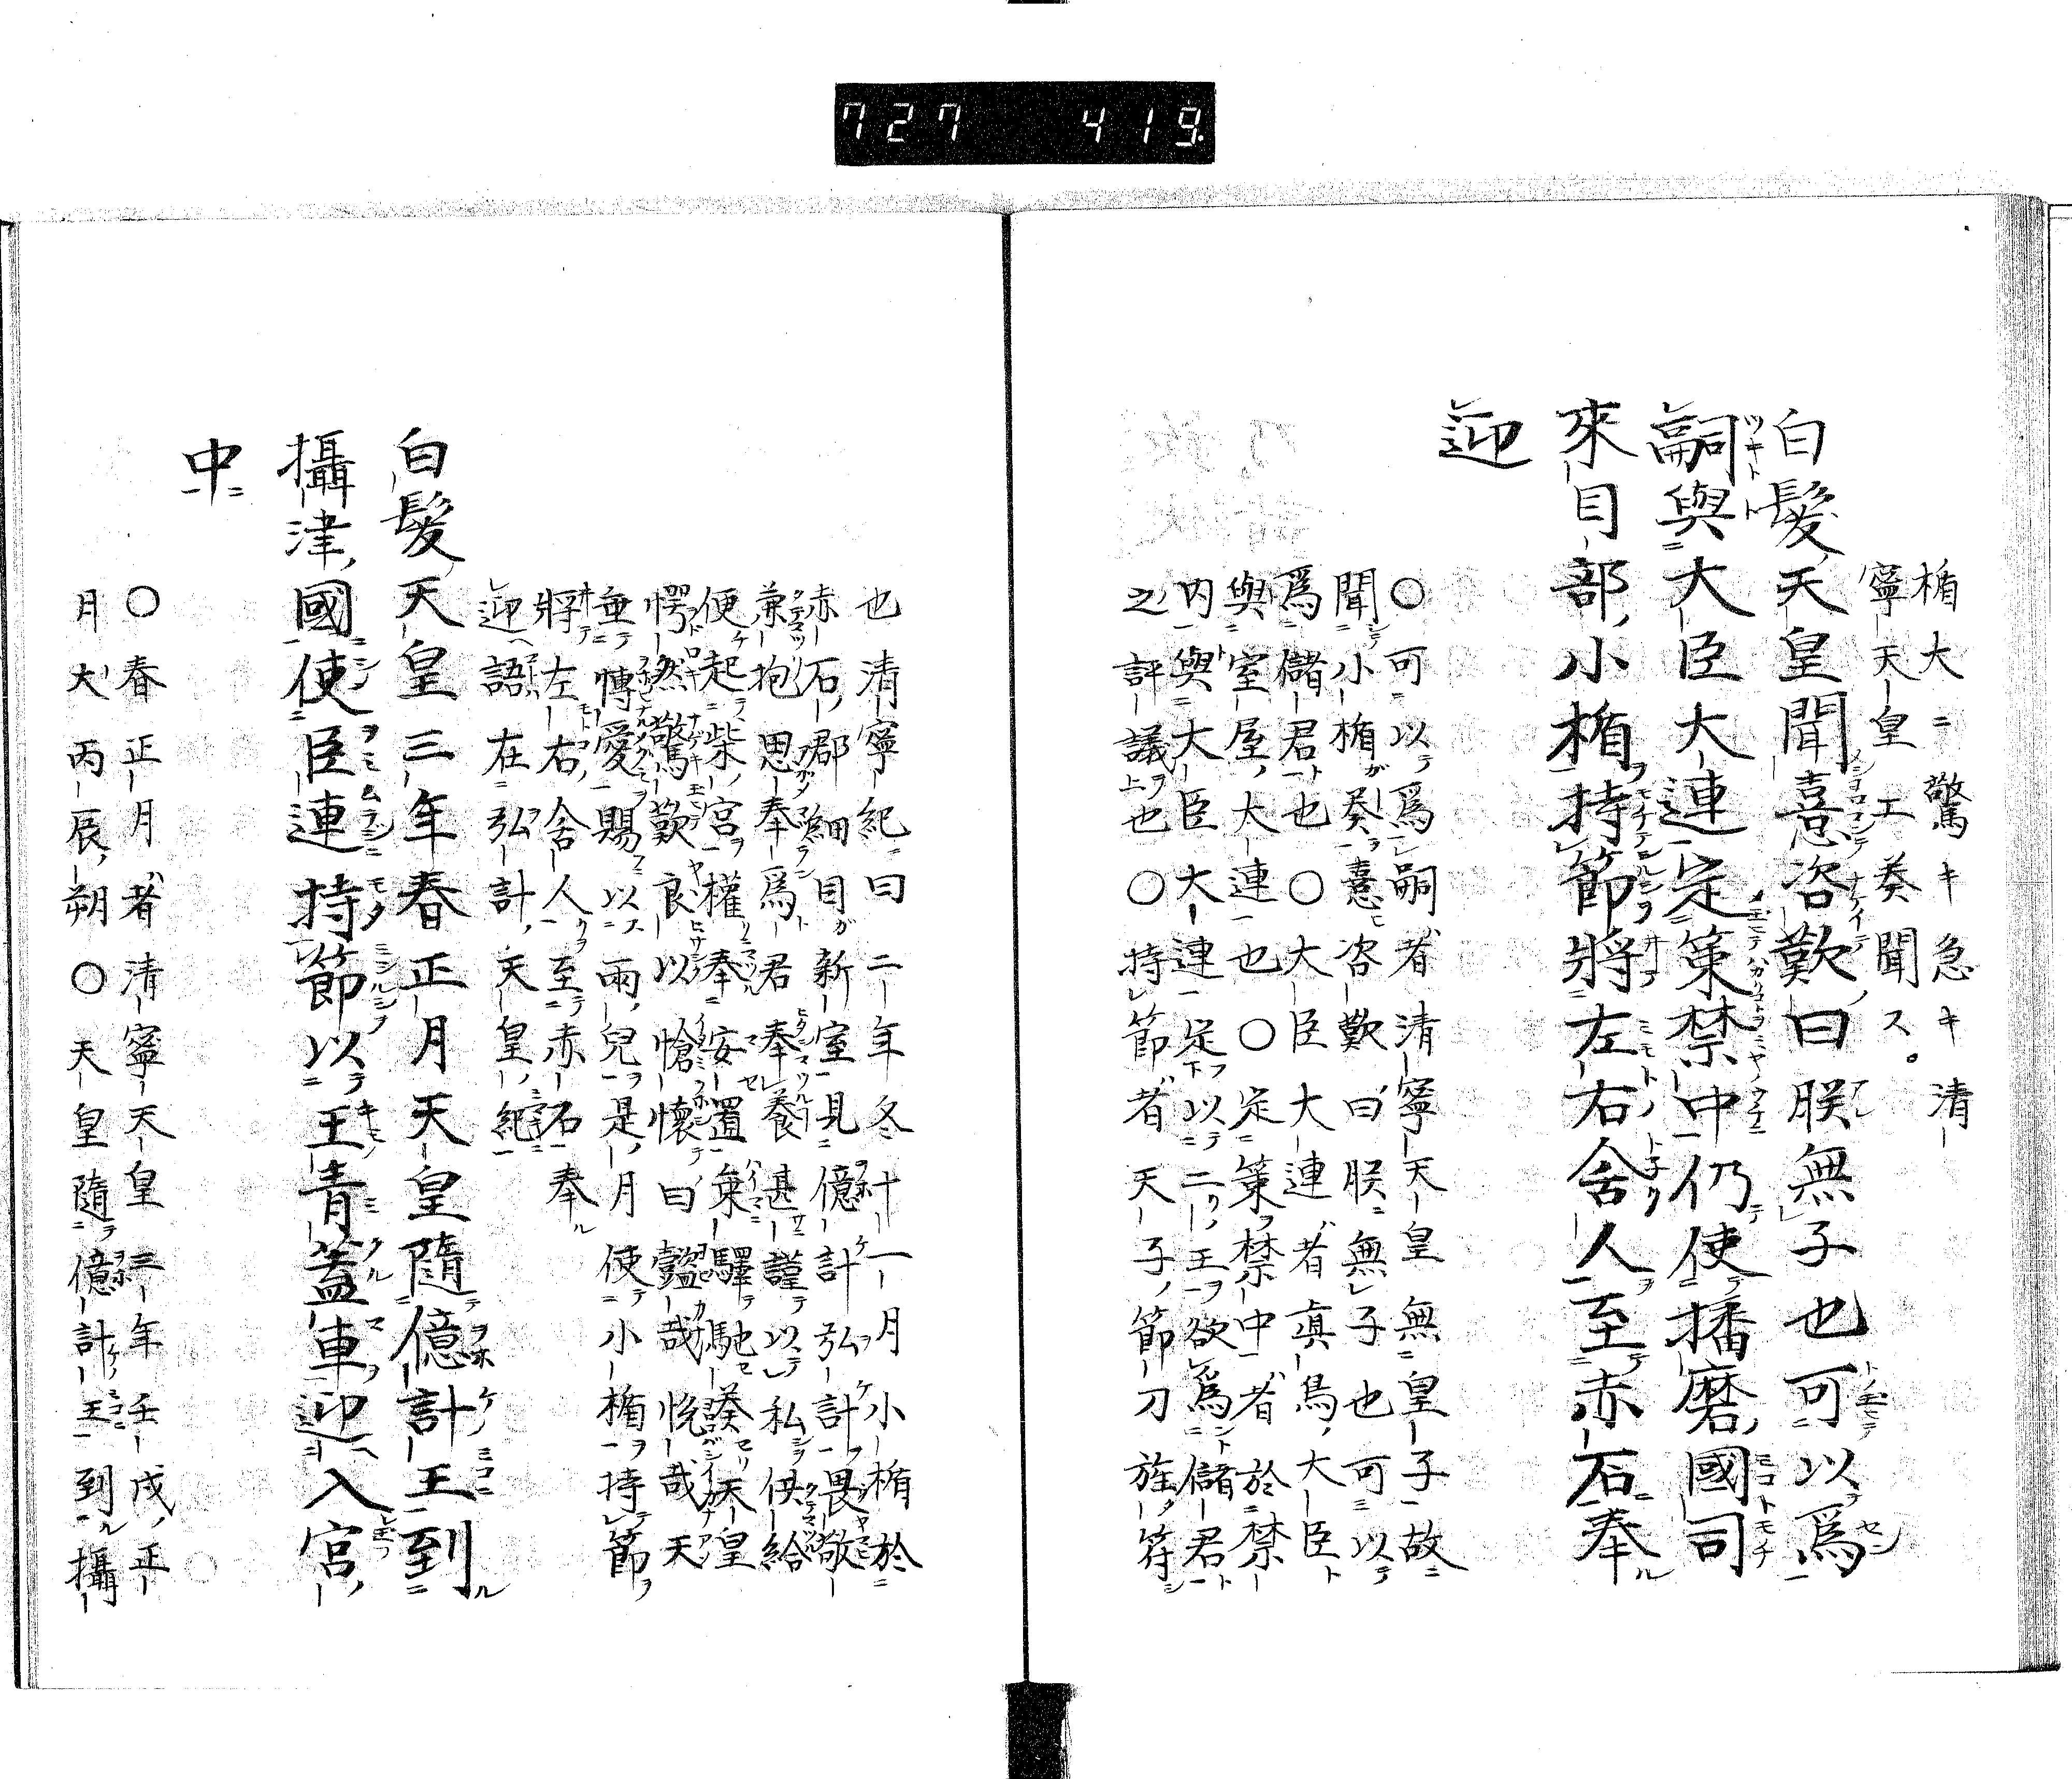 727 419
楯大ニ驚キ急キ清
寧天皇エ奏聞ス。
白髮天皇聞憙咨歎曰朕無子也可以爲
嗣與大臣大連定策禁中仍使播磨國司
來目部小楯持節將左右舍人至赤石奉
迎
○可以爲嗣者清寧天皇無皇子故
聞小楯奏憙咨歎曰朕無子也可以
爲儲君也○大臣大連者眞鳥大臣
與室屋大連也○定策禁中者於禁
内與大臣大連定以二王欲爲儲君
之評議也○持節者天子節刀旌符
也清寧紀曰二年冬十一月小楯於
赤石郡細目新室見億計弘計畏敬
兼抱思奉爲君奉養甚謹以私供給
便起柴宮權奉安置乗驛馳奏天皇
愕然驚歎良以愴懷曰懿哉悦哉天
垂愽愛賜以兩兒是月使小楯持節
將左右舍人至赤石奉
迎語在弘計天皇紀
白髮天皇三年春正月天皇隨億計王到
攝津國使臣連持節以王青蓋車迎入宮
中
○春正月者清寧天皇三年壬戌正
月大丙辰朔○天皇隨億計王到攝